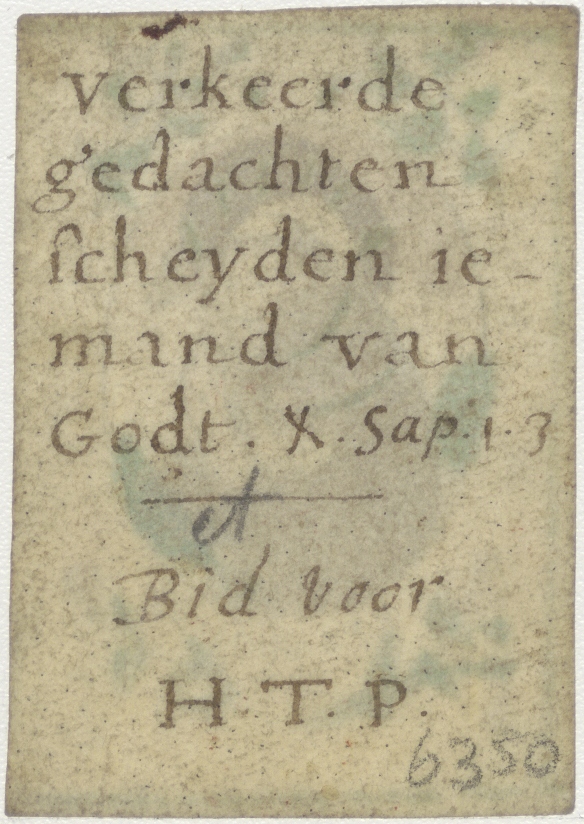 verkeerde
gedachten
ſcheyden ie-
mand van
Godt. X. Sap. 1. 3
et
Bid voor
H. T. P.
6350